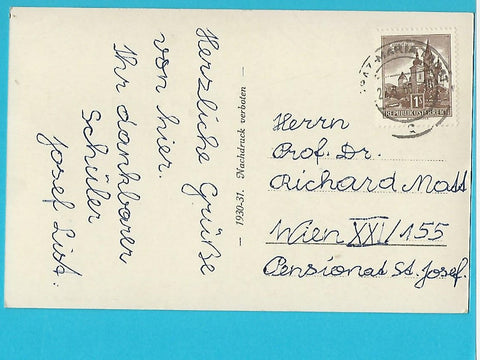 Herzliche Grüße
von hier.
Ihr dankbarer
Schüler
Josef List.
— 1930-31. Nachdruck verboten —
REPUBLIK ÖSTERREICH
1S
Herrn
Prof. Dr.
Richard Matt
Wien XXI/155
Pensionat St. Josef.